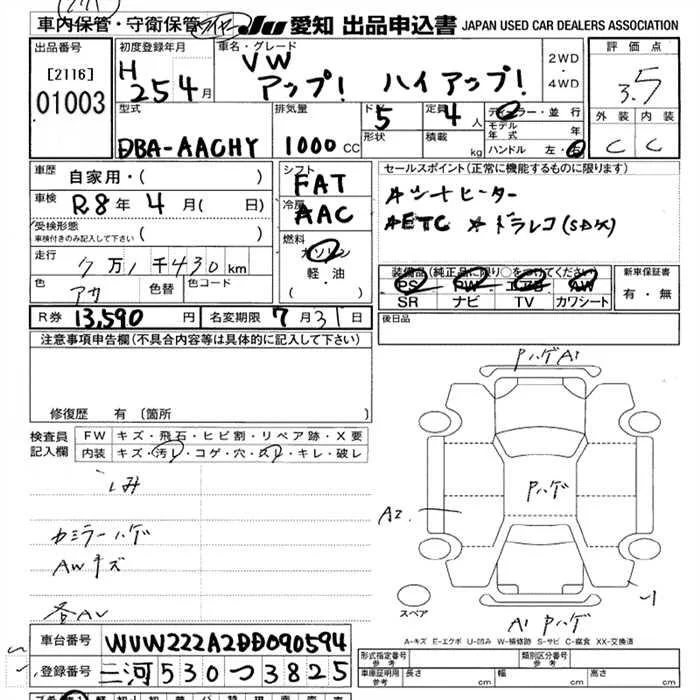 車内保管・守衛保管 タイヤ JU 愛知 出品申込書 JAPAN USED CAR DEALERS ASSOCIATION
出品番号 初度登録年月 車名・グレード 2WD・4WD 評価点
[2116] 01003 H 25 4月 VW アップ! ハイアップ! 3.5
型式 排気量 ドア 5 定員 4人 ディーラー・並行 外装 内装
DBA-AACHY 1000CC 形状 積載 kg モデル年式 年 C C
ハンドル 左・右
車歴 自家用・( ) シフト FAT セールスポイント(正常に機能するものに限ります)
車検 R8年 4月( 日) 冷房 AAC Aシートヒーター
受検形態 車検付きのみ記入して下さい ( ) AETC ドラレコ(SDﾒｽ)
走行 7万1千430km 燃料 ガソリン 軽・油 ・( )
装備品(純正品に限り○をつけてください) 新車保証書
PS PW エアB AW
SR ナビ TV カワシート 有・無
色 アカ 色替 色コード
R券 13,590円 名変期限 7月31日 後日品
注意事項申告欄(不具合内容等は具体的に記入して下さい)
修復歴 有(箇所
検査員記入欄 FW キズ・飛石・ヒビ割・リペア跡・X要
内装 キズ・汚レ・コゲ・穴・スレ・キレ・破レ
シミ
カミラーハゲ
AWキズ
各AU
PハゲA1
Pハゲ
A2
スペア
A1 Pハゲ
A-キズ E-エクボ U-凹み W-補修跡 S-サビ C-腐食 XX-交換済
車台番号 WVWZZZAAZDD090594
登録番号 三河530つ3825
形式指定番号 参考 類別区分番号 参考
車庫証明用 参考 長さ cm 幅 cm 高さ cm